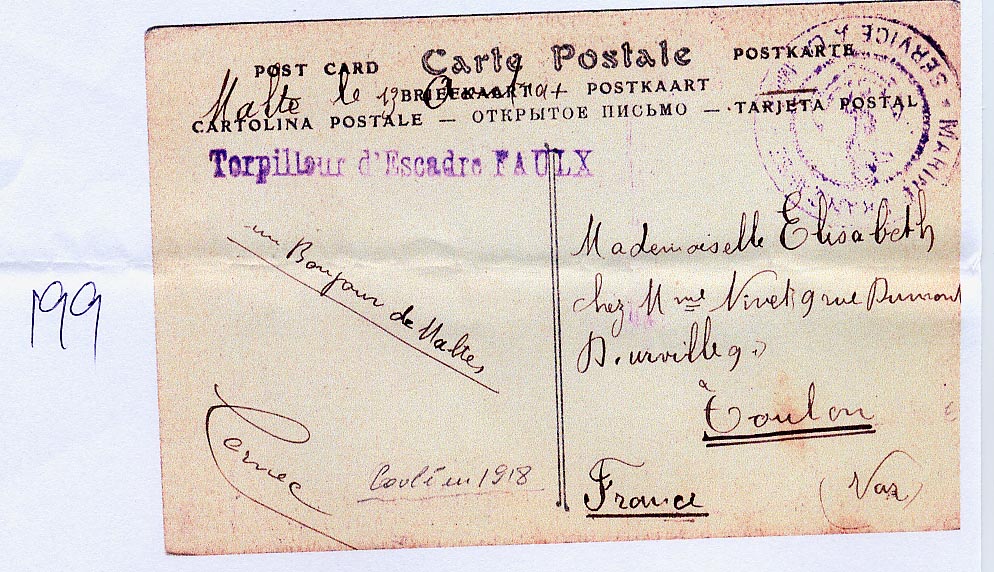 POST CARD Carte Postale POSTKARTE
BRIEFKAART POSTKAART
Malte le 13
CARTOLINA POSTALE — ОТКРЫТОЕ ПИСЬМО — TARJETA POSTAL
SERVICE À MARINE
Torpilleur d'Escadre FAULX
un Bonjour de Maltes
Cornec
Coulé en 1918
Mademoiselle Elisabeth
chez Mme Nivet 9 rue Dumont
D'urville 9
à
Toulon
France
(Var)
199